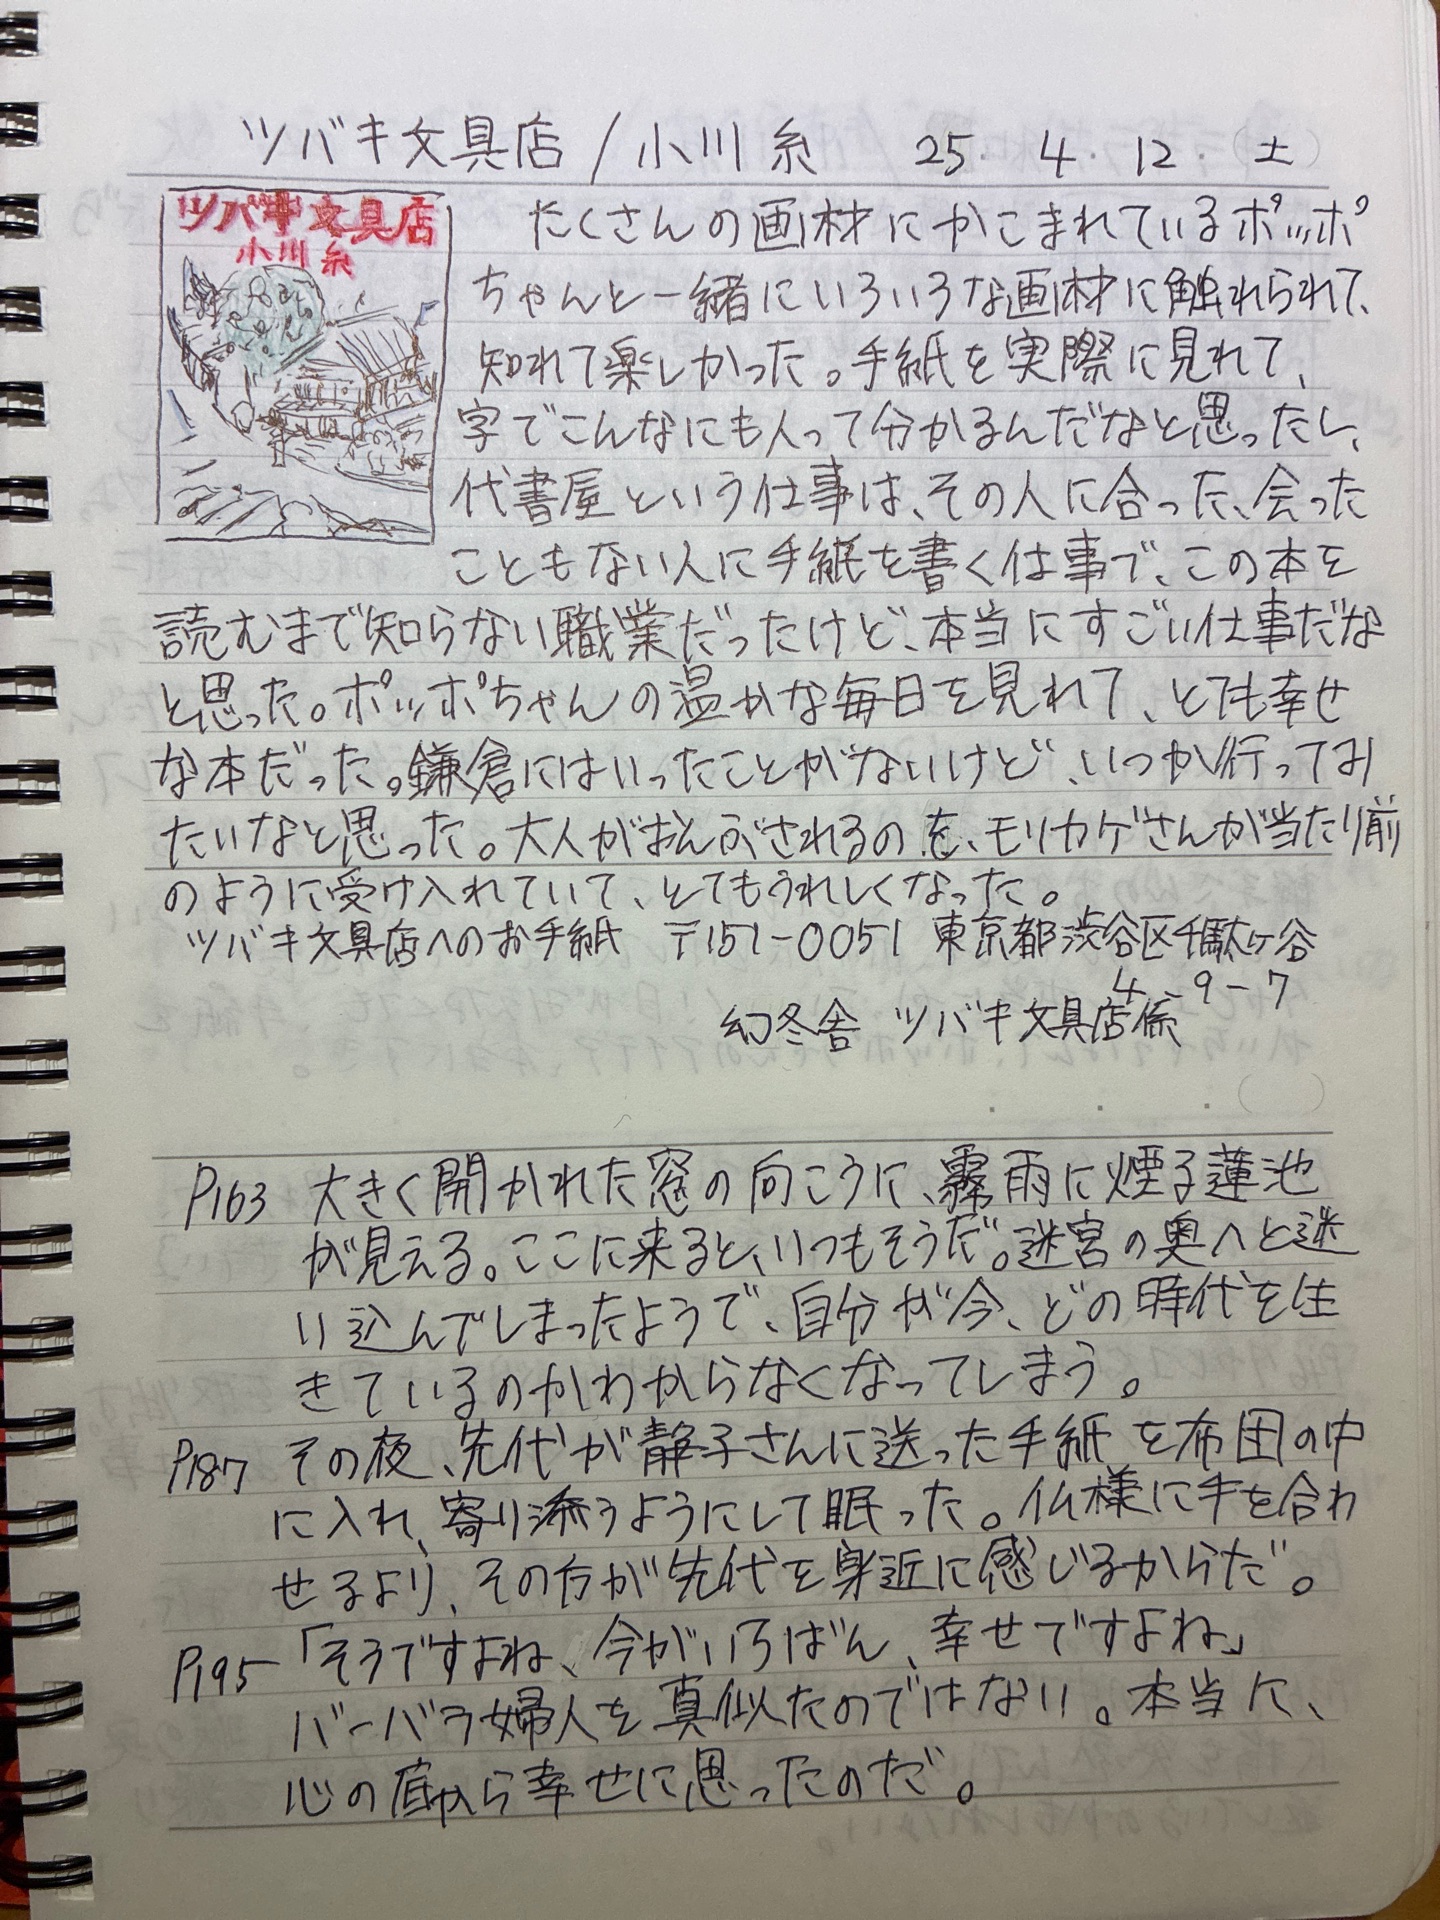 ツバキ文具店/小川糸 25.4.12.土
ツバキ文具店
小川糸
たくさんの画材にかこまれているポッポ
ちゃんと一緒にいろいろな画材に触れられて、
知れて楽しかった。手紙を実際に見れて、
字でこんなにも人って分かるんだなと思ったし、
代書屋という仕事は、その人に合った、会った
こともない人に手紙を書く仕事で、この本を
読むまで知らない職業だったけど、本当にすごい仕事だな
と思った。ポッポちゃんの温かな毎日を見れて、とても幸せ
な本だった。鎌倉にはいったことがないけど、いつか行ってみ
たいなと思った。大人がおんぶされるのを、モリカゲさんが当たり前
のように受け入れていて、とてもうれしくなった。
ツバキ文具店へのお手紙 〒151-0051 東京都渋谷区千駄ヶ谷
4-9-7
幻冬舎 ツバキ文具店係
. . . ( )
P163 大きく開かれた窓の向こうに、霧雨に煙る蓮池
が見える。ここに来ると、いつもそうだ。迷宮の奥へと迷
い込んでしまったようで、自分が今、どの時代を生
きているのかわからなくなってしまう。
P187 その夜、先代が静子さんに送った手紙を布団の中
に入れ、寄り添うようにして眠った。仏様に手を合わ
せるより、その方が先代を身近に感じるからだ。
P195 「そうですよね、今がいちばん、幸せですよね」
バーバラ婦人を真似たのではない。本当に、
心の底から幸せに思ったのだ。